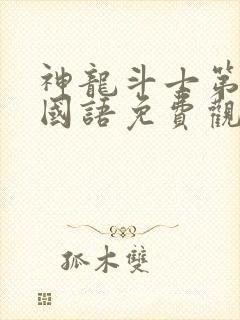 神龍斗士第
國語免費觀
孤木雙